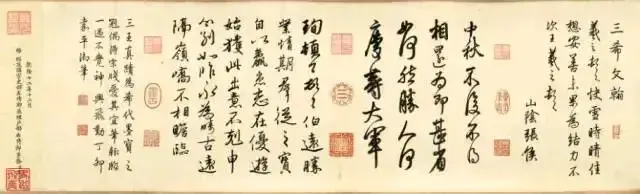 三希文翰
羲之頓首快雪時晴佳
想安善未果為結力不
次王羲之頓首
山陰張侯
中秋不復不得
相還為即甚省
如何然勝人何
慶等大軍
珣頓首頓首伯遠勝
業情期群從之寶
自以羸患志在優遊
始獲此出意不剋申
分別如昨永為疇古遠
隔嶺嶠不相瞻臨
三王真蹟為希代墨寶之
冠偶得宋牋愛其宜筆輒臨
一過不覺神興飛動丁卯
嘉平御筆
乾隆十二年十二月